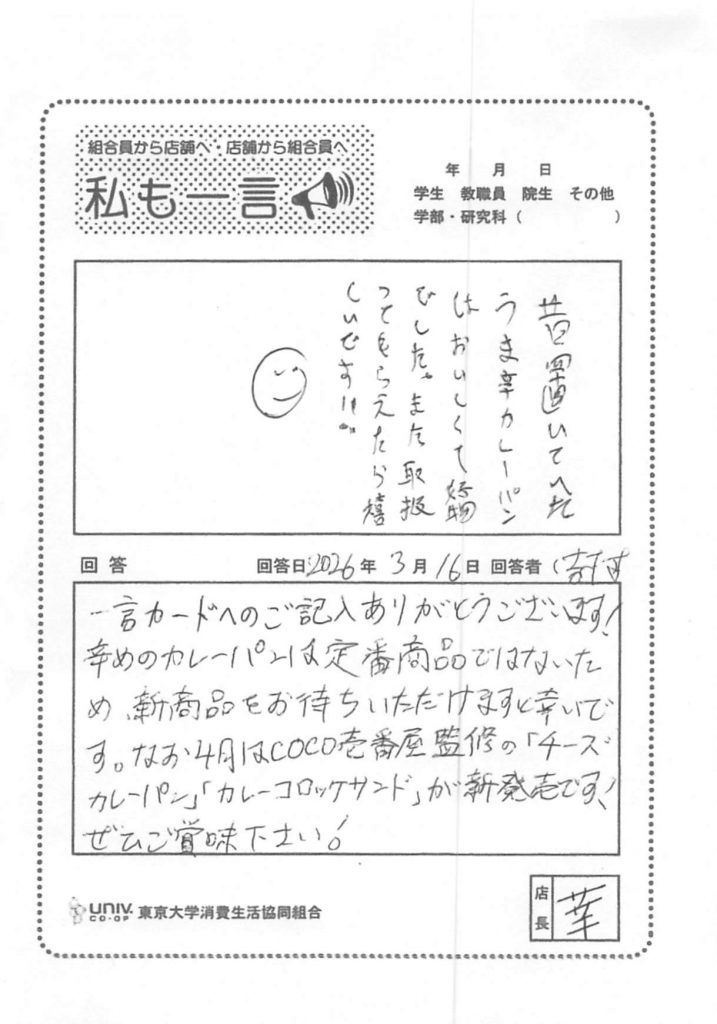 組合員から店舗へ・店舗から組合員へ
私も一言
年 月 日
学生 教職員 院生 その他
学部・研究科（ ）
昔置いてへた
うま辛カレーパン
はおいしくて好物
でした。また取扱
ってもらえたら嬉
しいです!!
回答 回答日 2026年 3月 16日 回答者
一言カードへのご記入ありがとうございます!
辛めのカレーパンは定番商品ではないた
め、新商品をお待ちいただけますと幸いで
す。なお4月はCOCO壱番屋監修の「チーズ
カレーパン」「カレーコロッケサンド」が新発売です!
ぜひご賞味下さい!
UNIV. CO-OP 東京大学消費生活協同組合
店長